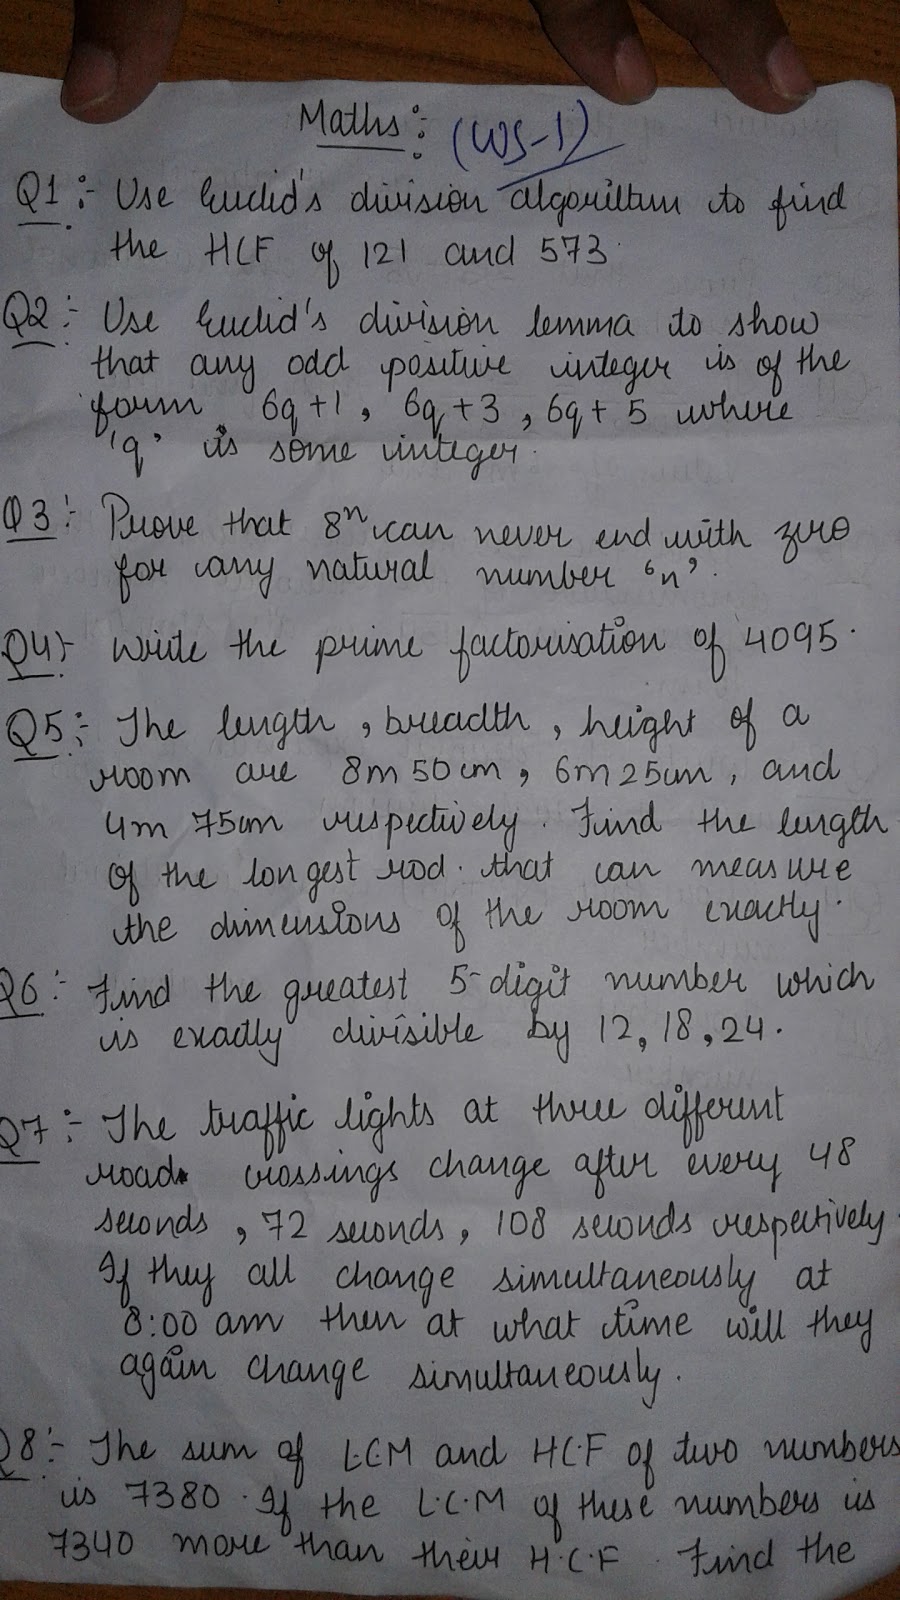 Maths:
(WS-1)
Q1:- Use Euclid's division algorithm to find
the HCF of 121 and 573.
Q2:- Use Euclid's division lemma to show
that any odd positive integer is of the
form 6q+1, 6q+3, 6q+5 where
'q' is some integer.
Q3:- Prove that 8ⁿ can never end with zero
for any natural number 'n'.
Q4:- Write the prime factorisation of 4095.
Q5:- The length, breadth, height of a
room are 8m 50cm, 6m 25cm, and
4m 75cm respectively. Find the length
of the longest rod that can measure
the dimensions of the room exactly.
Q6:- Find the greatest 5-digit number which
is exactly divisible by 12, 18, 24.
Q7:- The traffic lights at three different
road crossings change after every 48
seconds, 72 seconds, 108 seconds respectively.
If they all change simultaneously at
8:00 am then at what time will they
again change simultaneously.
Q8:- The sum of L.C.M and H.C.F of two numbers
is 7380. If the L.C.M of these numbers is
7340 more than their H.C.F. Find the